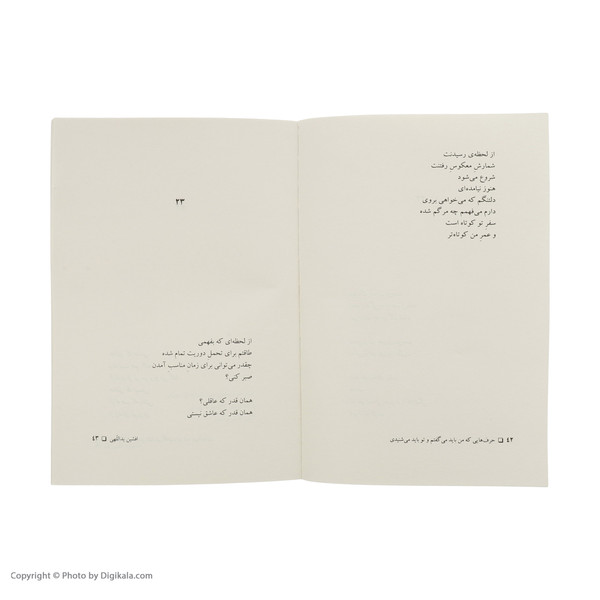 از لحظه‌ی رسیدنت
شمارش معکوسِ رفتنت
شروع می‌شود
هنوز نیامده‌ای
دلتنگم که می‌خواهی بروی
دارم می‌فهمم چه مرگم شده
سفرِ تو کوتاه است
و عمرِ من کوتاه‌تر
۴۲ ❏ حرف‌هایی که من باید می‌گفتم و تو باید می‌شنیدی
۲۳
از لحظه‌ای که بفهمی
طاقتم برای تحمل دوریت تمام شده
چقدر می‌توانی برای زمان مناسب آمدن
صبر کنی؟
همان قدر که عاقلی؟
همان قدر که عاشق نیستی
افشین یداللهی ❏ ۴۳
Copyright © Photo by Digikala.com